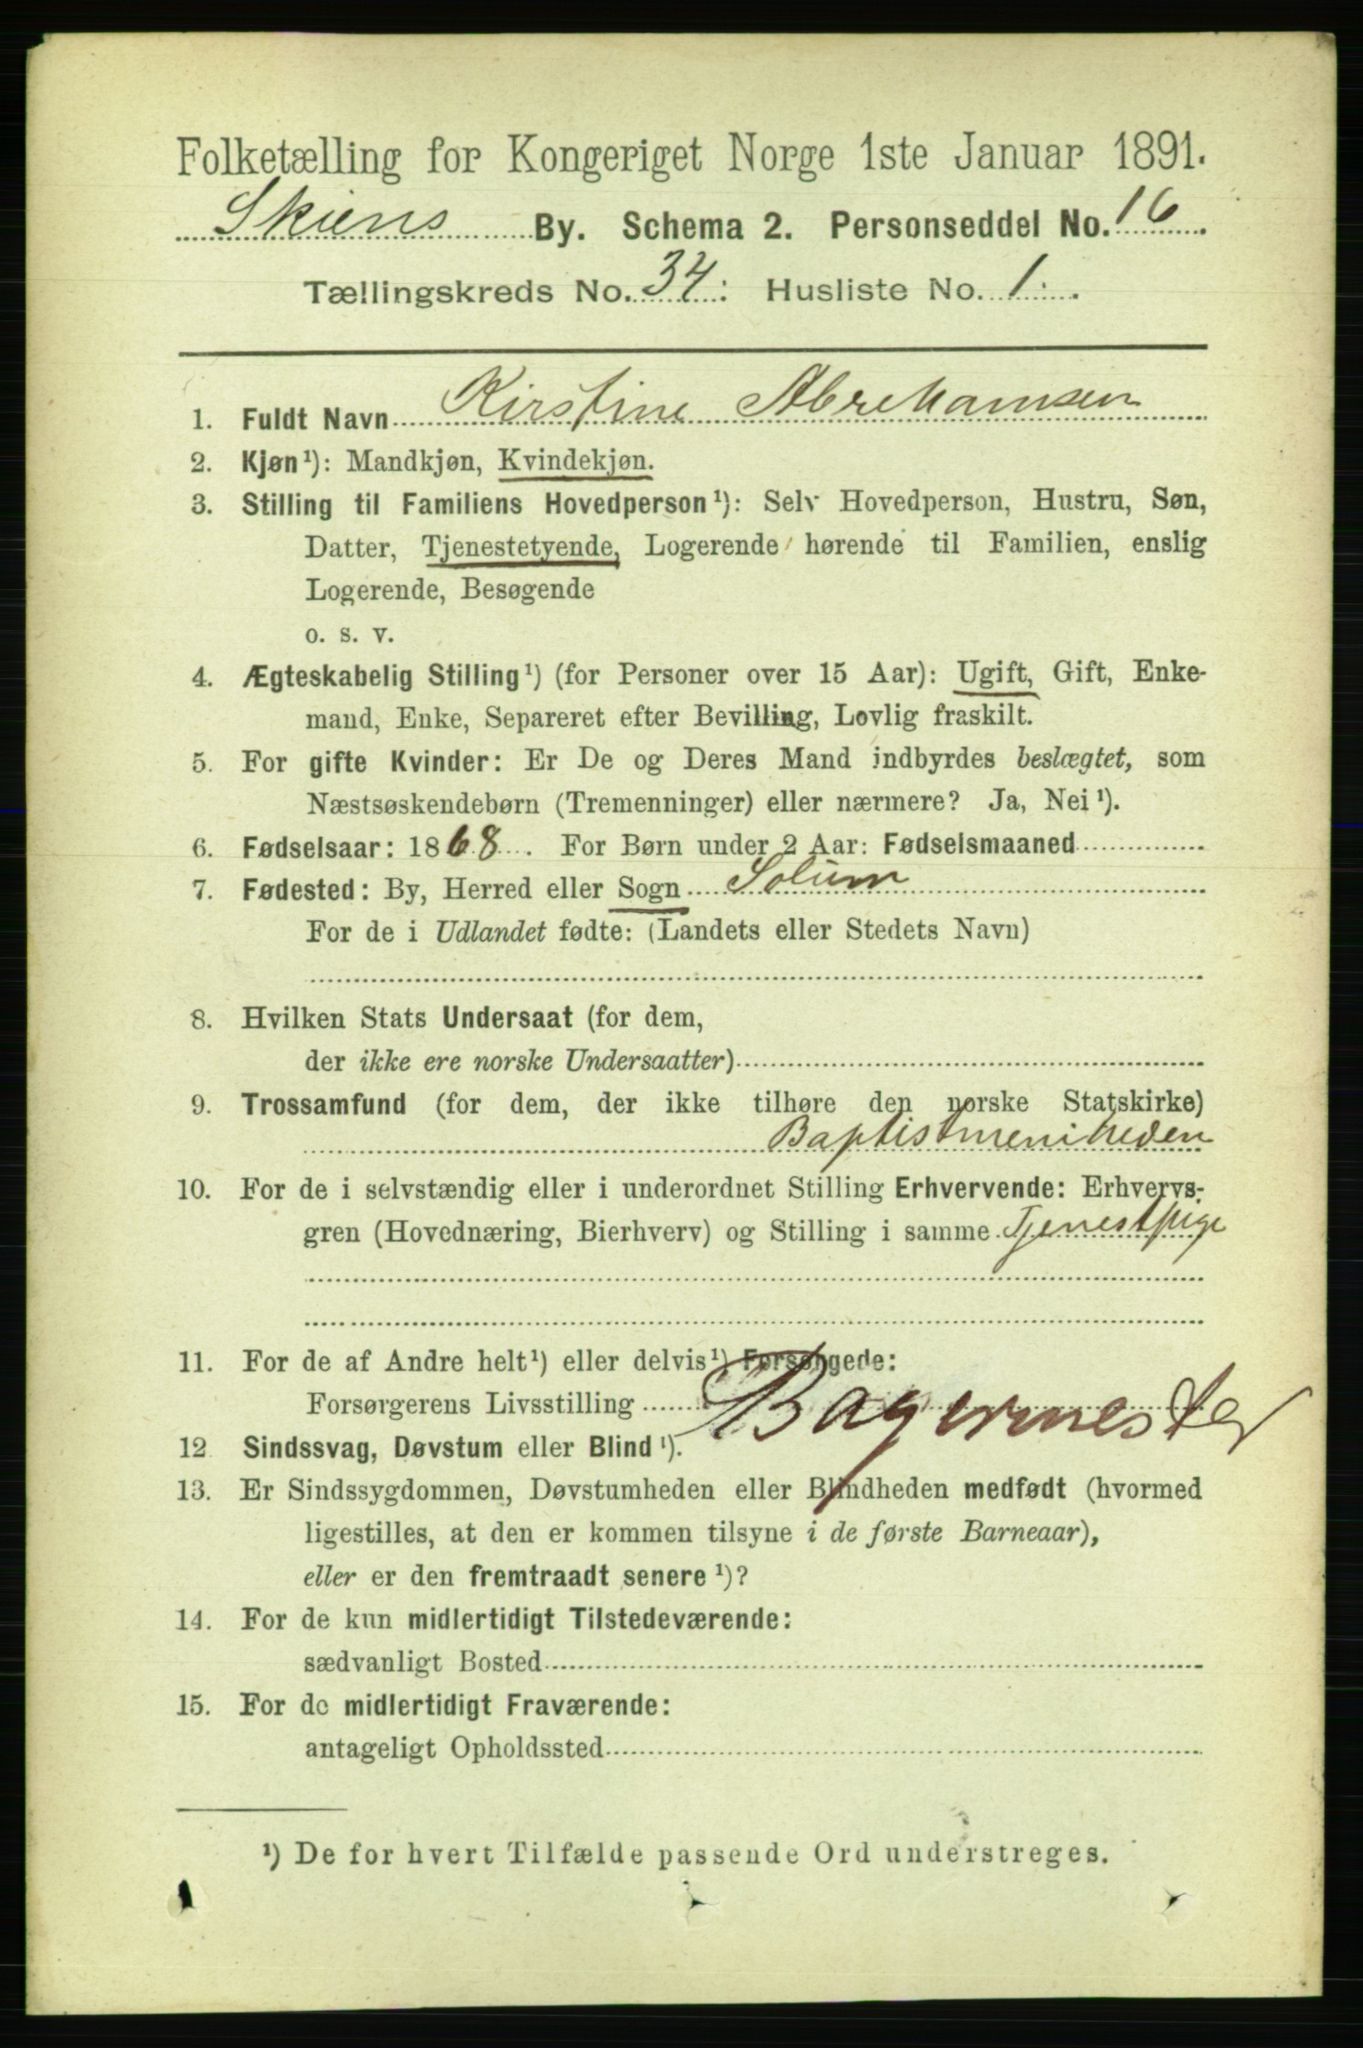 Folketælling for Kongeriget Norge 1ste Januar 1891.
Skiens By. Schema 2. Personseddel No. 16
Tællingskreds No. 34: Husliste No. 1.
1. Fuldt Navn Kirstine Abrehamsen
2. Kjøn¹): Mandkjøn, Kvindekjøn.
3. Stilling til Familiens Hovedperson¹): Selv Hovedperson, Hustru, Søn,
Datter, Tjenestetyende, Logerende hørende til Familien, enslig
Logerende, Besøgende
o. s. v.
4. Ægteskabelig Stilling¹) (for Personer over 15 Aar): Ugift, Gift, Enke-
mand, Enke, Separeret efter Bevilling, Lovlig fraskilt.
5. For gifte Kvinder: Er De og Deres Mand indbyrdes beslægtet, som
Næstsøskendebørn (Tremenninger) eller nærmere? Ja, Nei¹).
6. Fødselsaar: 1868. For Børn under 2 Aar: Fødselsmaaned
7. Fødested: By, Herred eller Sogn Solum
For de i Udlandet fødte: (Landets eller Stedets Navn)
8. Hvilken Stats Undersaat (for dem,
der ikke ere norske Undersaatter)
9. Trossamfund (for dem, der ikke tilhøre den norske Statskirke)
Baptistmenikeden
10. For de i selvstændig eller i underordnet Stilling Erhvervende: Erhvervs-
gren (Hovednæring, Bierhverv) og Stilling i samme Tjenestpige
11. For de af Andre helt¹) eller delvis¹) Forsørgede:
Forsørgerens Livsstilling Bagermester
12. Sindssvag, Døvstum eller Blind¹).
13. Er Sindssygdommen, Døvstumheden eller Blindheden medfødt (hvormed
ligestilles, at den er kommen tilsyne i de første Barneaar),
eller er den fremtraadt senere¹)?
14. For de kun midlertidigt Tilstedeværende:
sædvanligt Bosted
15. For de midlertidigt Fraværende:
antageligt Opholdssted
¹) De for hvert Tilfælde passende Ord understreges.